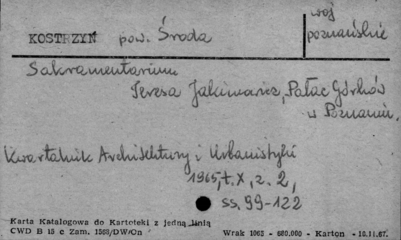 KOSTRZYN pow. Środa
woj
poznańskie
Sakramentarium
Teresa Jakimowicz, Pałac Górków
w Poznaniu.
Kwartalnik Architektury i Urbanistyki
1965, t. X, z. 2,
ss. 99-122
Karta Katalogowa do Kartoteki z jedną linią
CWD B 15 c Zam. 1563/DW/On
Wrak 1062 - 680.000 - Karton - 10.11.67.